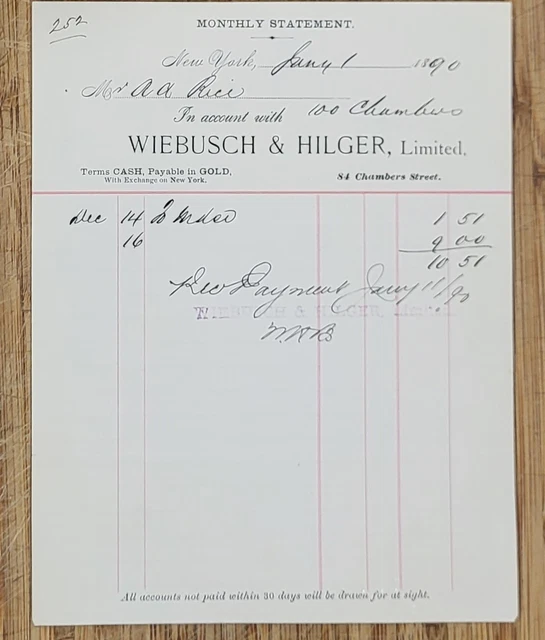 252
MONTHLY STATEMENT.
New York, Jany 1 1890
Mr A A Rice
100 Chambers
In account with
WIEBUSCH & HILGER, Limited,
Terms CASH, Payable in GOLD,
With Exchange on New York.
84 Chambers Street.
Dec 14 To Mdse 1 51
16 9 00
10 51
Rec Payment Jany 11/90
WIEBUSCH & HILGER, Limited.
All accounts not paid within 30 days will be drawn for at sight.